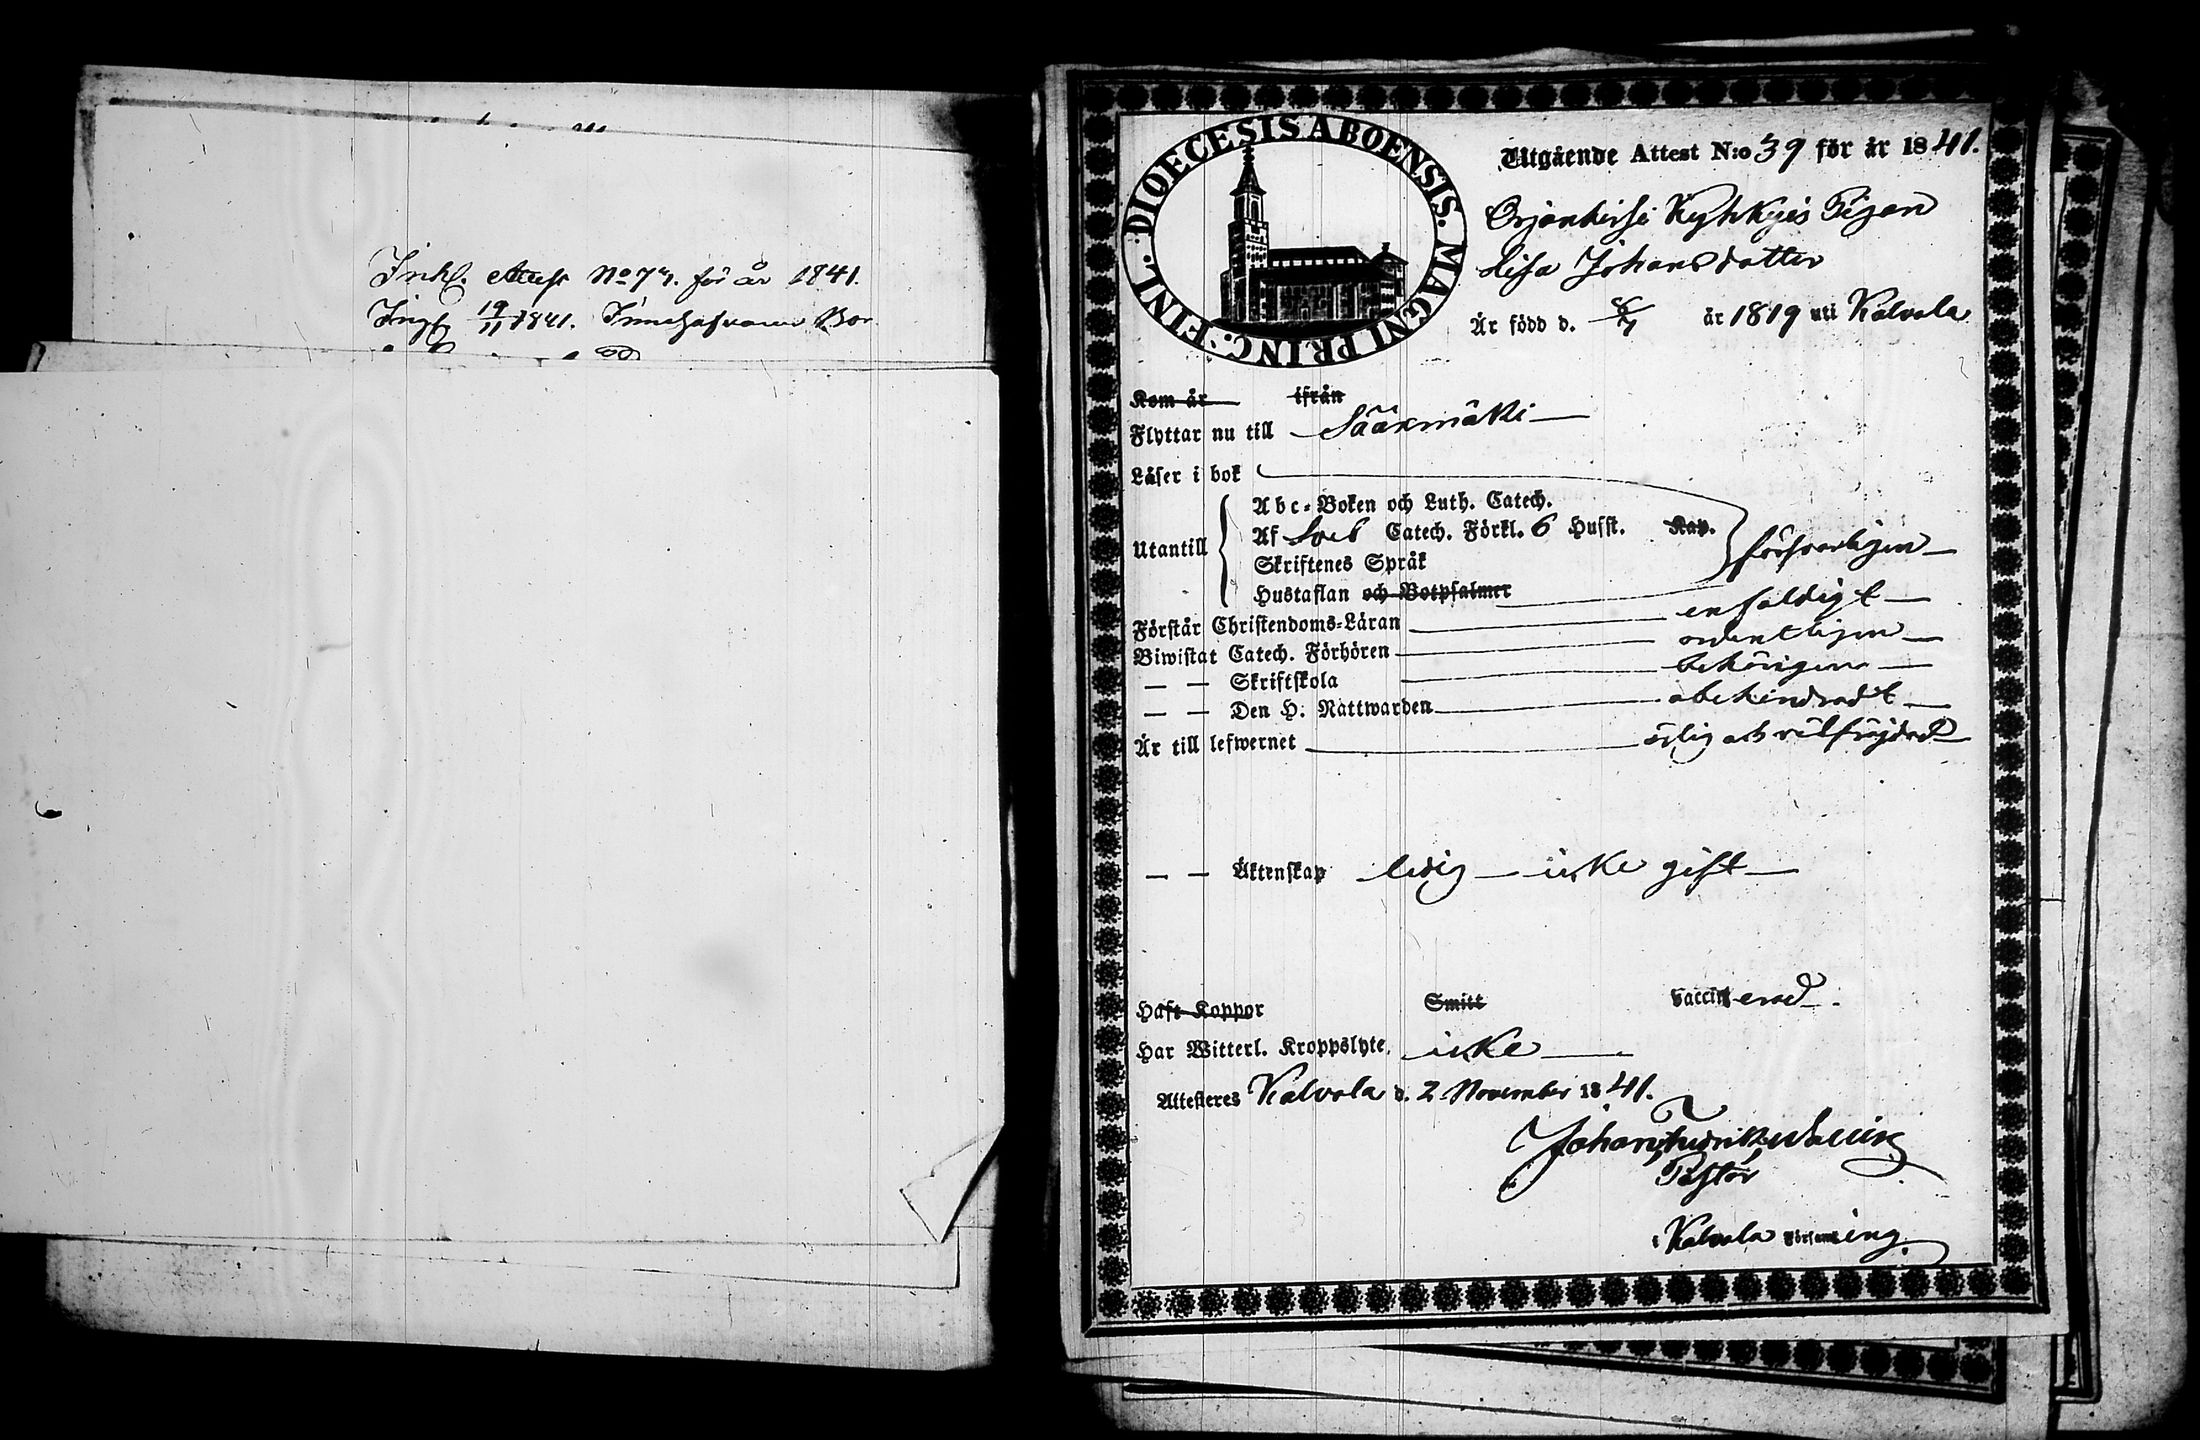 Inkl. Attest No 77. för år 1841.
Ingf 19/11 1841. Innehafvaren Bor
DIOECESIS ABOENSIS. MAGNI PRINC. FINL.
Utgående Attest N:o 39 för år 1841.
Orjanhirsi Kyhkyis Pigan
Lisa Johansdotter
Är född d. år 1819 uti Kalvola
Kom år ifrån
Flyttar nu till Sääxmäki
Läser i bok
Abc-Boken och Luth. Catech.
Af Sveb Catech. Förkl. 6 Hufst. Kap.
Utantill
försvarligen
Skriftenes Språk
Hustaflan och Botpsalmer
Förstår Christendoms-Läran enfaldigt
Biwistat Catech. Förhören ordentligen
— — Skriftskola behörigen
— — Den H. Nattwarden obehindradt
Är till lefwernet ärlig och välfrejdad
— — Äktenskap ledig — icke gift
Haft Koppor Smitt vaccinerad.
Har Witterl. Kroppslyte, icke
Attesteres Kalvola d. 2 November 1841.
Johan Fredrik
Pastor
i Kalvola Församling.